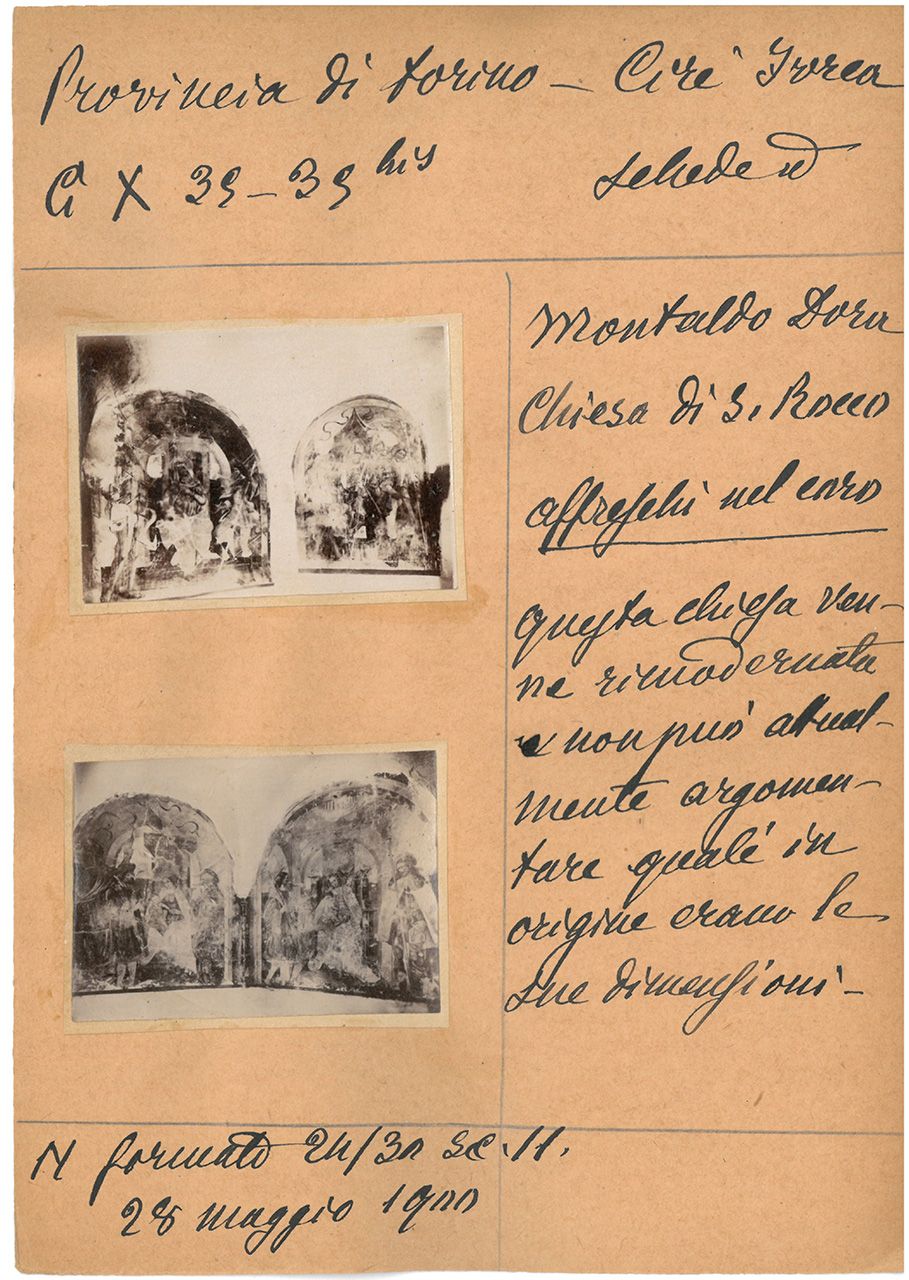 Provincia di Torino – Circ Ivrea
X 39–39 bis
schede
Montaldo Dora
Chiesa di S. Rocco
affreschi nel coro
Questa chiesa ven-
ne rimodernata
e non può attual-
mente argomen-
tare quale in
origine erano le
sue dimensioni –
N formato 24/30 sc. 11.
28 maggio 1900